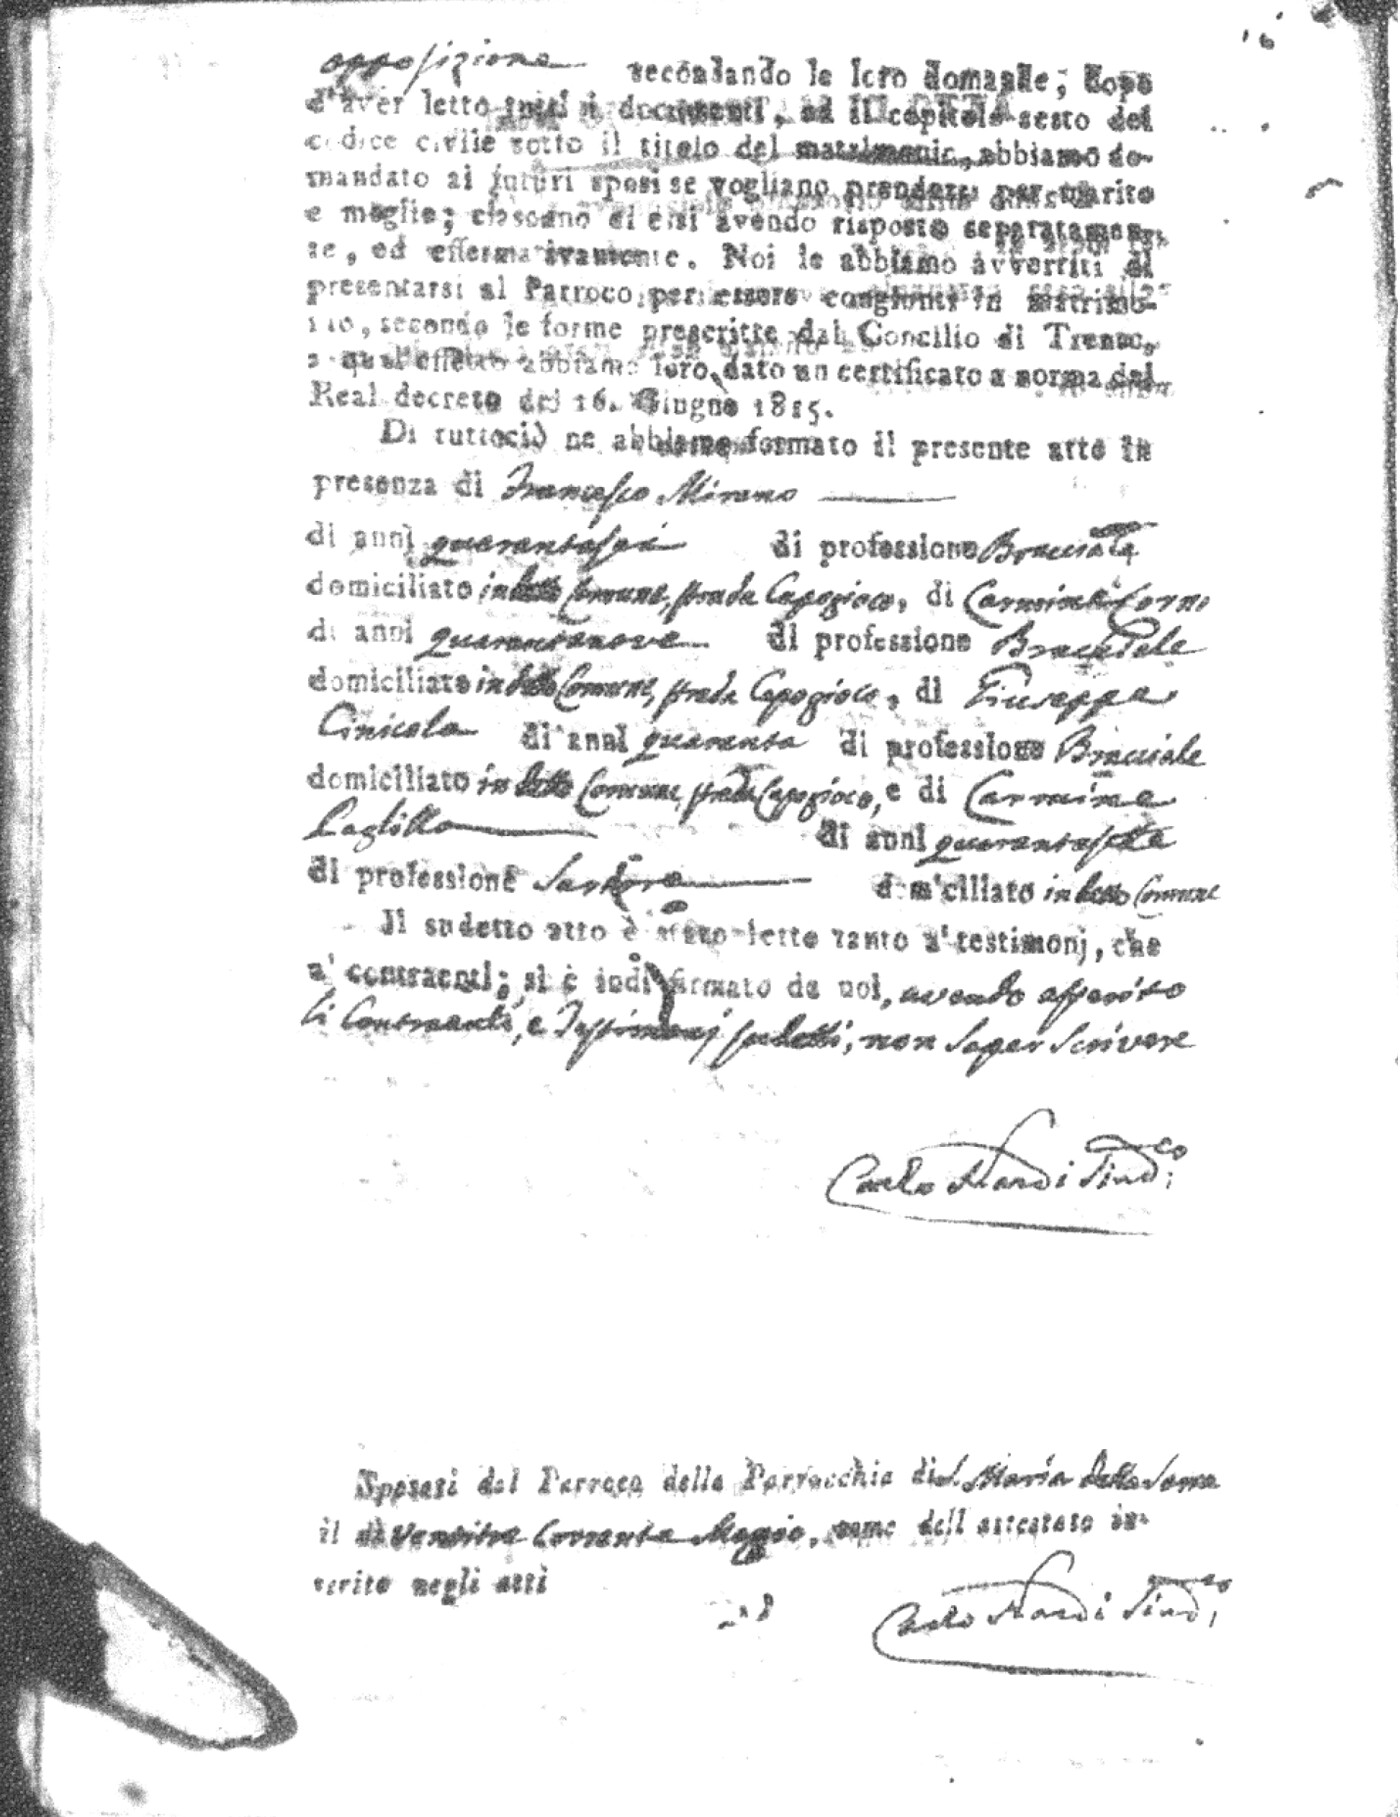 opposizione secondando le loro domande; dopo
d'aver letto tutti i documenti, ed il capitolo sesto del
codice civile sotto il titolo del matrimonio, abbiamo do-
mandato ai futuri sposi se vogliano prendersi per marito
e moglie; ciascuno di essi avendo risposto separatamen-
te, ed affermativamente. Noi le abbiamo avvertiti di
presentarsi al Parroco per essere congionti in matrimo-
nio, secondo le forme prescritte dal Concilio di Trento,
a qual'effetto abbiamo loro dato un certificato a norma del
Real decreto dei 16. Giugno 1815.
Di tuttociò ne abbiamo formato il presente atto in
presenza di Francesco Mirano
di anni quarantasei di professione Bracciale
domiciliato in detto Comune, strada Capogioco, di Carmine
di anni quarantanove di professione Bracciale
domiciliato in detto Comune, strada Capogioco, di Giuseppe
Cinicola di anni quaranta di professione Bracciale
domiciliato in detto Comune, strada Capogioco, e di Carmine
di anni quarantasette
di professione Sartore domiciliato in detto Comune
Il sudetto atto è stato letto tanto a' testimonj, che
a' contraenti; si è indi firmato da noi, avendo asserito
li Contraenti, e Testimonj sudetti, non saper scrivere
Carlo Nardi Sind.co
Sposati dal Parroco della Parrocchia di S. Maria della
il dì Ventitre Corrente Maggio, come dell'attestato in-
serito negli atti
Carlo Nardi Sind.co